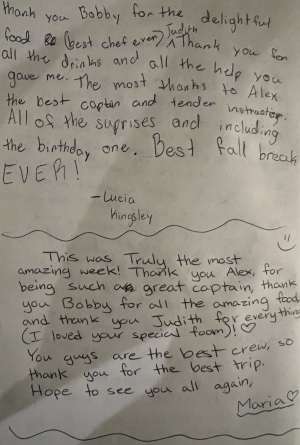 thank you Bobby for the delightful
food (best chef ever) Judith Thank you for
all the drinks and all the help you
gave me. The most thanks to Alex
the best captin and tender instructor.
All of the suprises and including
the birthday one. Best fall break
EVER!
- Lucia
Kingsley
This was Truly the most
amazing week! Thank you Alex, for
being such a great captain, thank
you Bobby for all the amazing food
and thank you Judith for everything
(I loved your special foam)! ♡
You guys are the best crew, so
thank you for the best trip.
Hope to see you all again,
Maria ♡